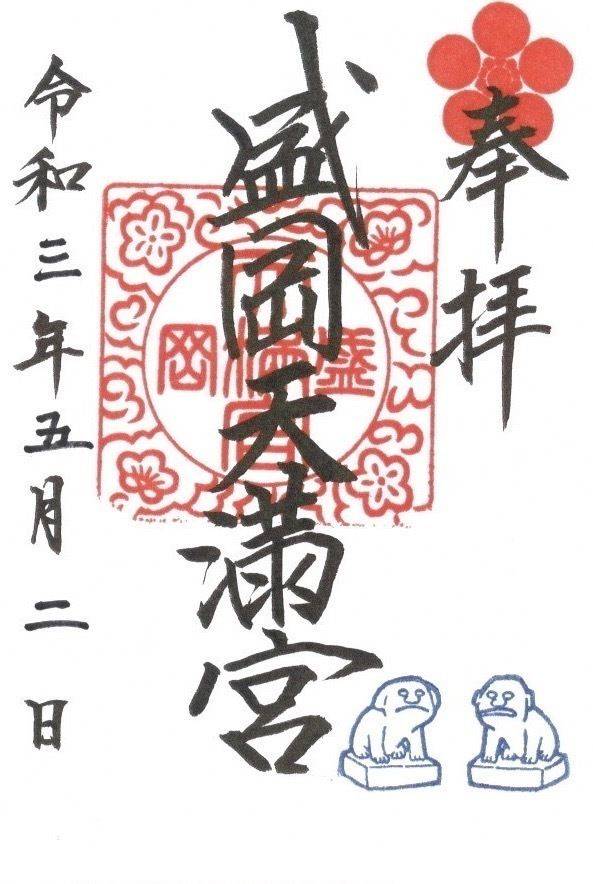 奉拝
盛岡天満宮
盛岡天満宮
令和三年五月二日